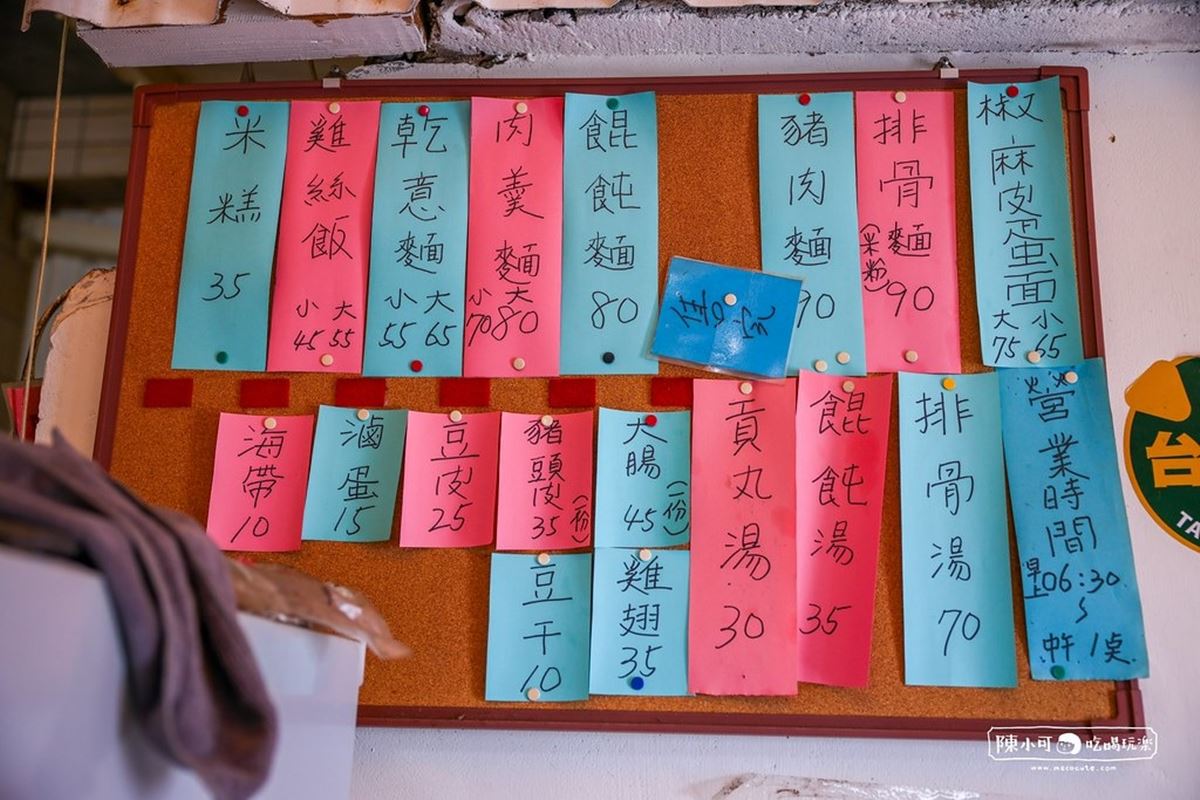 米糕 35
雞絲飯 小45 大55
乾意麵 小55 大65
肉羹麵 小70 大80
餛飩麵 80
豬肉麵 90
排骨麵 (米粉) 90
椒麻皮蛋面 大75 小65
海帶 10
滷蛋 15
豆皮 25
豬頭皮 35 (一份)
大腸 45 (一份)
豆干 10
雞翅 35
貢丸湯 30
餛飩湯 35
排骨湯 70
營業時間 早上06:30 ~ 中午 1
台
TA
陳小可 吃喝玩樂
www.mecocute.com